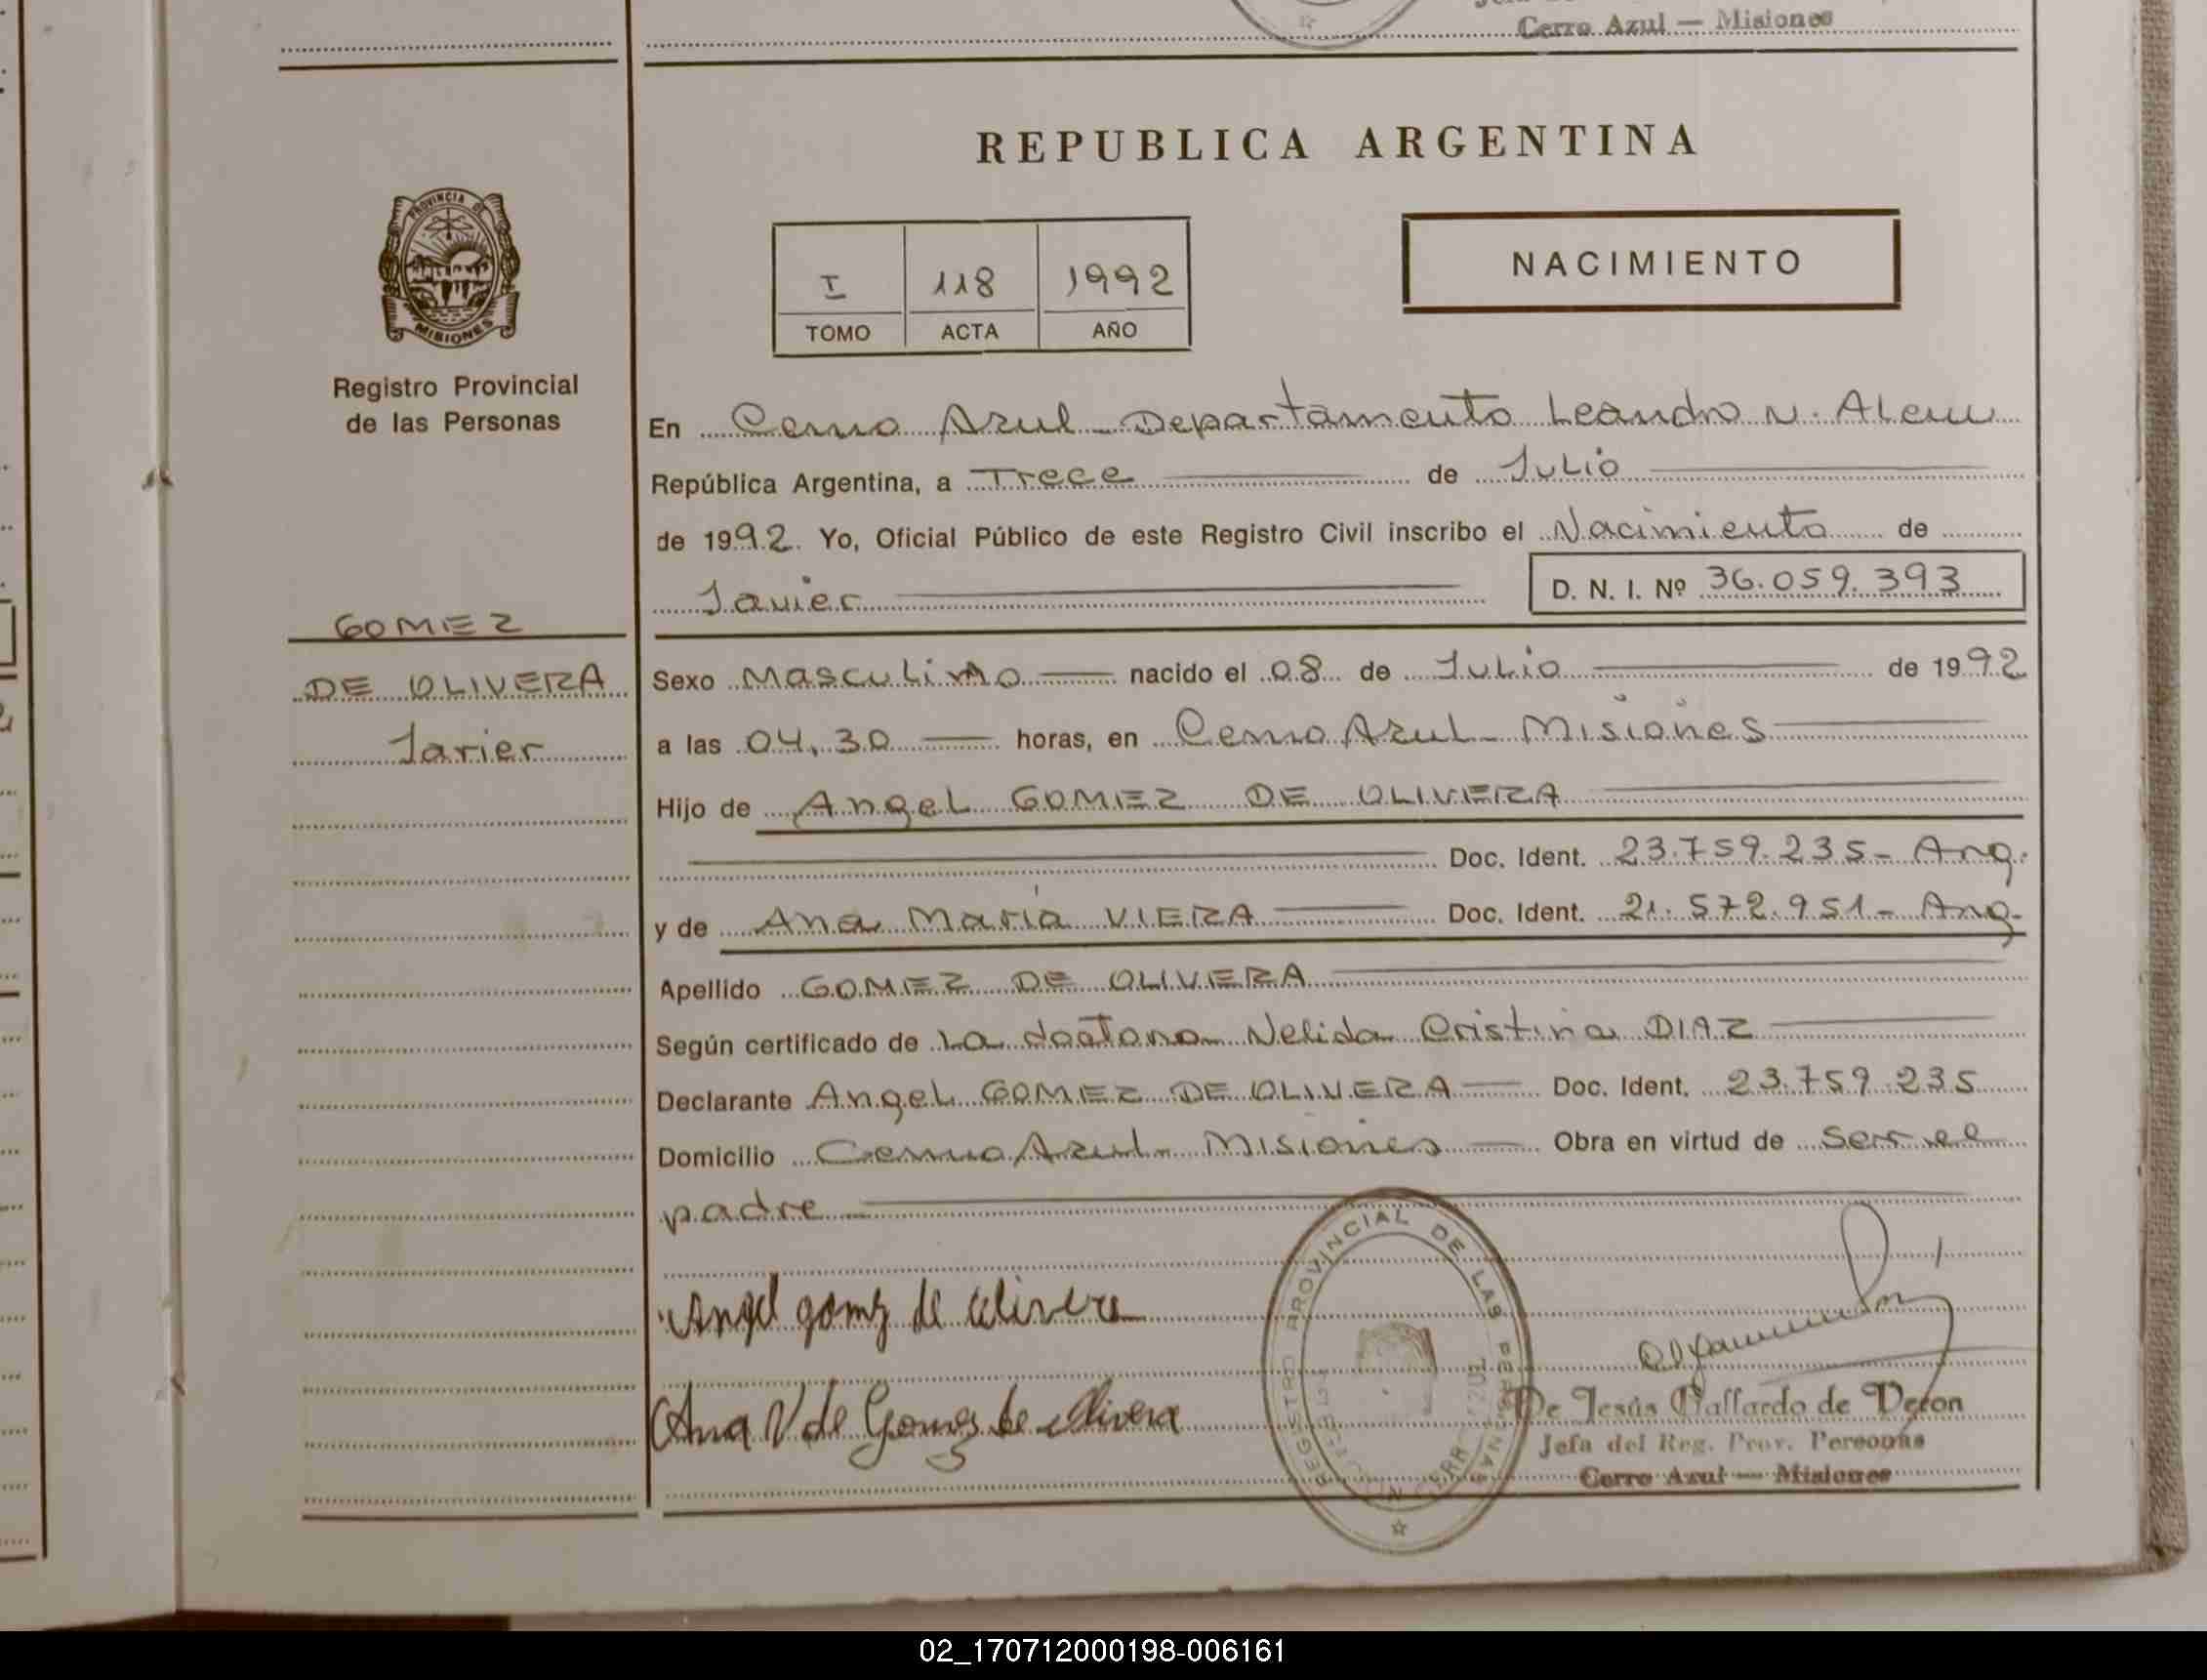 Cerro Azul — Misiones
REPUBLICA ARGENTINA
PROVINCIA DE
MISIONES
Registro Provincial
de las Personas
I 118 1992
TOMO ACTA AÑO
NACIMIENTO
En Cerro Azul - Departamento Leandro N. Alem
República Argentina, a Trece de Julio
de 1992. Yo, Oficial Público de este Registro Civil inscribo el Nacimiento de
Javier
D. N. I. Nº 36.059.393
GOMEZ
DE OLIVERA
Javier
Sexo Masculino nacido el 08 de Julio de 1992
a las 04,30 horas, en Cerro Azul - Misiones
Hijo de Angel GOMEZ DE OLIVERA
Doc. Ident. 23.759.235 - Arg.
y de Ana María VIERA Doc. Ident. 21.572.951 - Arg.
Apellido GOMEZ DE OLIVERA
Según certificado de La doctora Nelida Cristina DIAZ
Declarante Angel GOMEZ DE OLIVERA Doc. Ident. 23.759.235
Domicilio Cerro Azul - Misiones Obra en virtud de Ser el
padre
Angel gomez de olivera
Ana V de Gomez de Olivera
REGISTRO PROVINCIAL DE LAS PERSONAS
De Jesús Gallardo de Deron
Jefa del Reg. Prov. Personas
Cerro Azul — Misiones
02_170712000198-006161